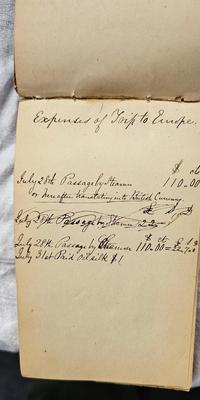 Expenses of Trip to Europe.
$ ct
July 28th Passage by Steamer 110-00
or hereafter translating into British Curency
£ s d
July 28th Passage by Steamer 22
$ ct £ s d
July 28th Passage by Steamer 110-00=22-7-
July 31st Paid oil silk $1